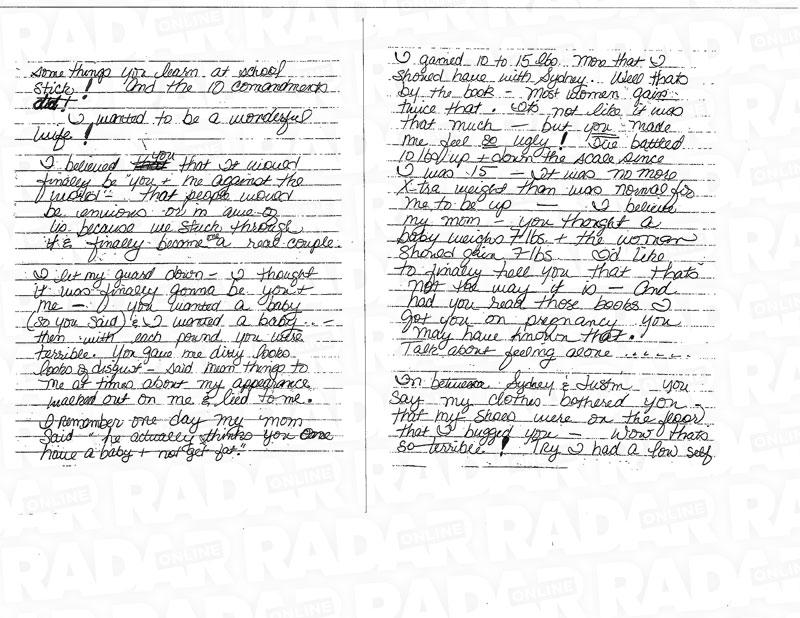 some things you learn at school
stick! And the 10 comandments
did!
I wanted to be a wonderful
wife!
I believed you that it would
finaley be "you + me against the
world" - that people would
be envious or in awe of
us because we stuck through
it & finally became a real couple.
I let my guard down - I thought
it was finally gonna be you +
me - you wanted a baby
(so you said) & I wanted a baby ...-
then with each pound you were
terrible. You gave me dirty looks
looks of disgust - said mean things to
me at times about my appearance
walked out on me & lied to me.
I remember one day my mom
said " he actually thinks you can
have a baby + not get fat."
I gained 10 to 15 lbs. more that I
should have with Sydney. Well thats
by the book - Most women gain
twice that. Its not like it was
that much - but you made
me feel so ugly! I've battled
10 lbs up + down the scale since
I was 15 - It was no more
X-tra weight than was normal for
me to be up — I believe
my mom - you thought a
baby weighs 7 lbs + the woman
should gain 7 lbs. I'd like
to finally tell you that thats
not the way it is - And
had you read those books I
got you on pregnancy you
may have known that.
Talk about feeling alone ......
In between Sydney & Justin you
say my clothes bothered you -
that my shoes were on the floor
that I bugged you - Wow! thats
so terrible! Try I had a low self
RADAR ONLINE